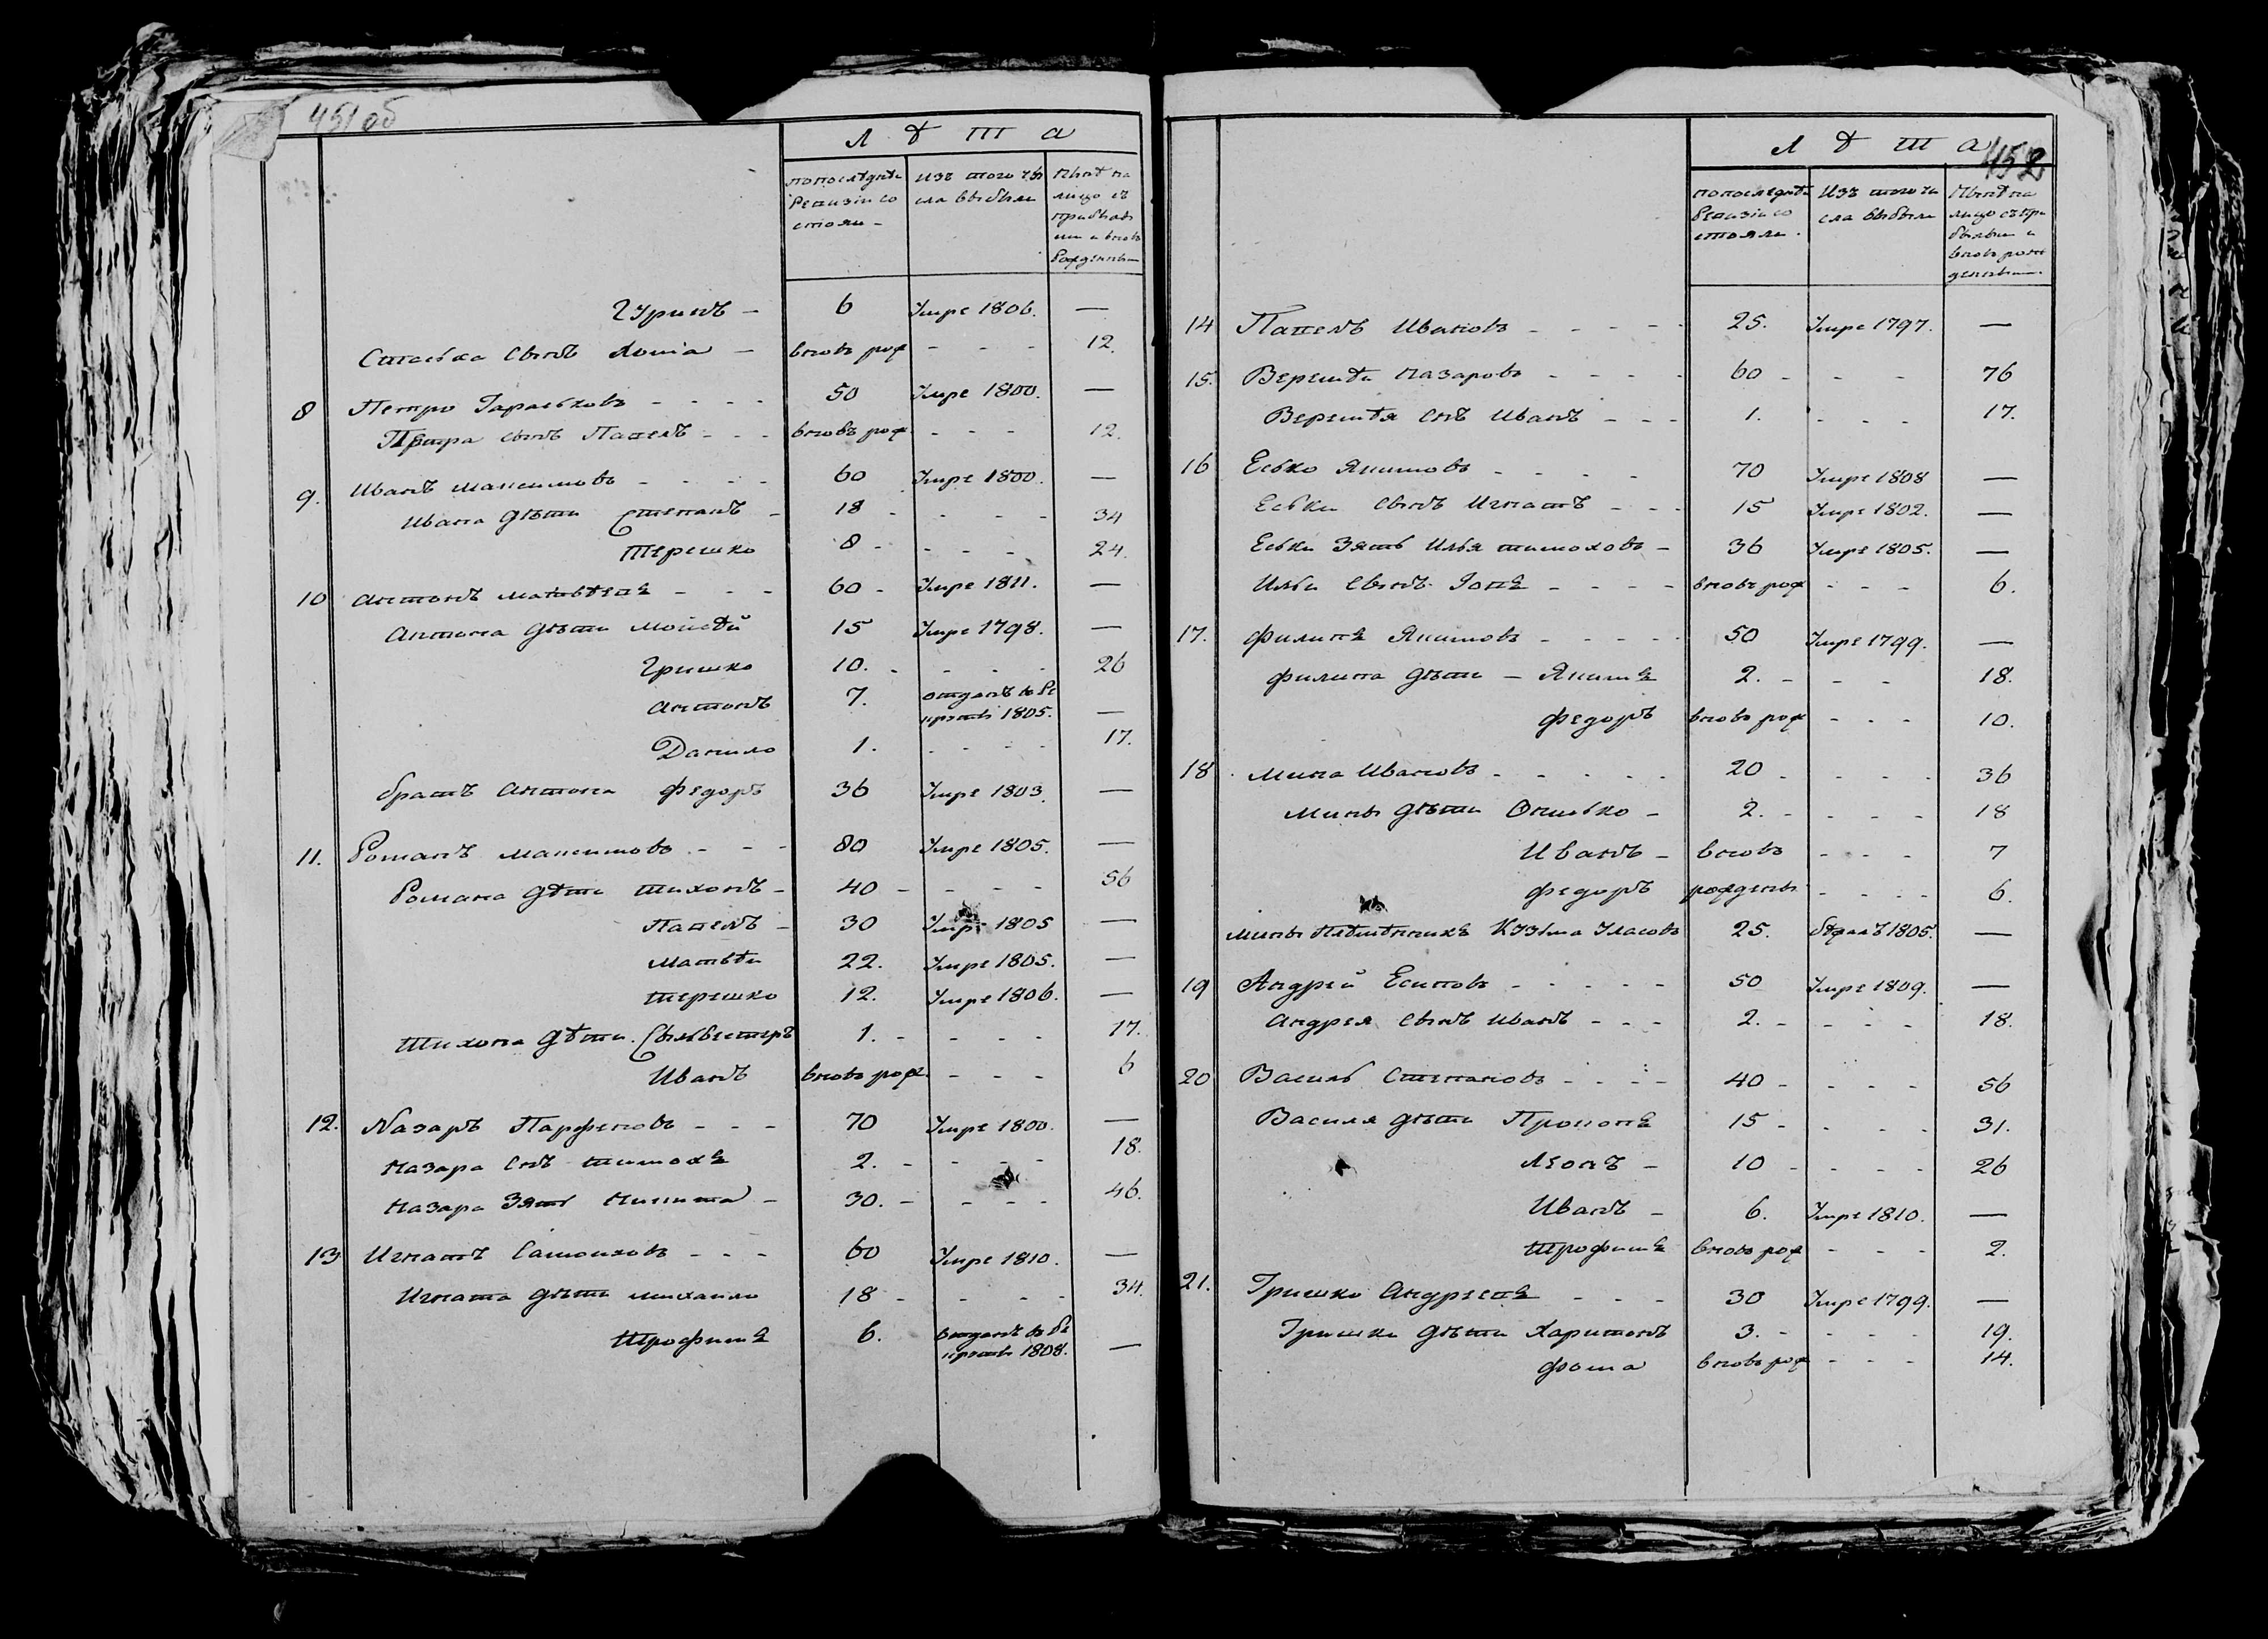 451 об
Л ѣ т а
попоследне Ревизіи состояли
Изъ того числа выбыли
Нынѣ на лицо съ прибылыми и вновь рожденными
Гуринъ — 6 Умре 1806. —
Стаська сынъ Хома — вновь рож - - - 12.
8 Петро Гараськовъ - - - - 50 Умре 1800. —
Петра сынъ Павелъ - - - вновь рож - - - 12.
9. Иванъ Максимовъ - - - - 60 Умре 1800. —
Ивана дѣти Степанъ - 18 - - - - 34
Терешко 8 - - - - 24.
10 Антонъ Матвѣевъ - - - 60 - Умре 1811. —
Антона дѣти Мойсѣй 15 Умре 1798. —
Гришко 10. - - - - 26
Антонъ 7. отданъ въ рекруты 1805. —
Данило 1. - - - - 17.
братъ Антона Федоръ 36 Умре 1803. —
11. Романъ Максимовъ - - - 80 Умре 1805. —
Романа дѣти Тихонъ - 40 - - - - 56
Павелъ - 30 Умре 1805 —
Матвѣй 22. Умре 1805. —
Терешко 12. Умре 1806. —
Тихона дѣти Сильвестръ 1. - - - - 17.
Иванъ вновь рож. - - - 6
12. Назаръ Парфеновъ - - - 70 Умре 1800. —
Назара снъ Тимохъ 2. - - - - 18.
Назара Зять Никита - 30. - - - - 46.
13 Игнатъ Самойловъ - - - 60 Умре 1810. —
Игната дѣти Михайло 18 - - - - 34.
Трофимъ 6. отданъ въ рекруты 1808. —
452
Л ѣ т а
попоследней Ревизіи состояли.
Изъ того числа выбыли
Нынѣ на лицо съ прибылыми и вновь рожденными.
14 Павелъ Ивановъ - - - - - 25. Умре 1797. —
15. Веремѣй Назаровъ - - - - 60 - - - 76
Веремѣя снъ Иванъ - - - 1. - - - 17.
16 Еська Якимовъ - - - - 70 Умре 1808 —
Еськи сынъ Игнатъ - - - 15 Умре 1802. —
Еськи Зять Илья Тимоховъ - 36 Умре 1805. —
Ильи сынъ - - - - вновь рож - - - 6.
17. Филипъ Якимовъ - - - - - 50 Умре 1799. —
Филипа дѣти — Якимъ 2. - - - 18.
Федоръ вновь рож - - - 10.
18 Мина Ивановъ - - - - - 20 - - - - 36
Мины дѣти Онисько - 2. - - - - 18
Иванъ - вновь - - - 7
Федоръ рождены - - - - 6.
Мины племѣнникъ Кузьма Уласовъ 25. бѣжалъ 1805. —
19 Андрей Есиповъ - - - - - 50 Умре 1809. —
Андрея сынъ Иванъ - - - 2. - - - - 18.
20 Василь Степановъ - - - - 40 - - - - 56
Василя дѣти Прокопъ 15 - - - - 31.
Леонъ - 10 - - - - 26
Иванъ - 6. Умре 1810. —
Трофимъ вновь рож - - - 2.
21. Гришко Андреевъ - - - 30 Умре 1799. —
Гришки дѣти Харитонъ 3. - - - - 19.
Фома вновь рож - - - 14.